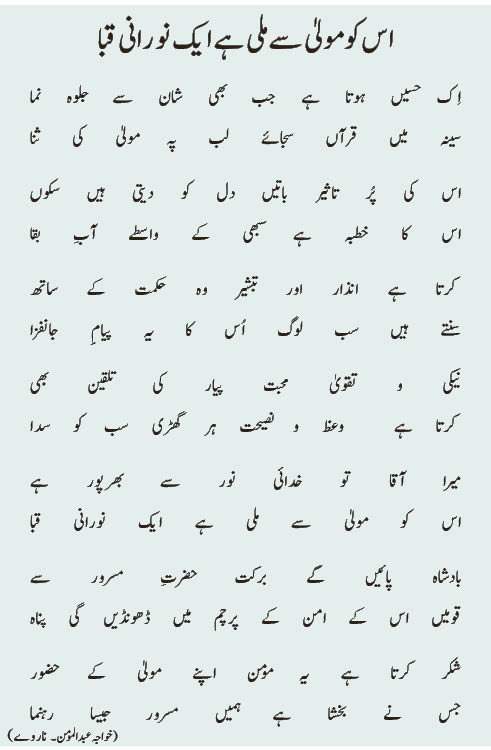 اس کو مولیٰ سے ملی ہے ایک نورانی قبا
اِک حسیں ہوتا ہے جب بھی شان سے جلوہ نما
سینہ میں قرآں سجائے لب پہ مولیٰ کی ثنا
اس کی پُر تاثیر باتیں دل کو دیتی ہیں سکوں
اس کا خطبہ ہے سبھی کے واسطے آبِ بقا
کرتا ہے انذار اور تبشیر وہ حکمت کے ساتھ
سنتے ہیں سب لوگ اُس کا یہ پیامِ جانفزا
نیکی و تقویٰ محبت پیار کی تلقین بھی
کرتا ہے وعظ و نصیحت ہر گھڑی سب کو سدا
میرا آقا تو خدائی نور سے بھرپور ہے
اس کو مولیٰ سے ملی ہے ایک نورانی قبا
بادشاہ پائیں گے برکت حضرتِ مسرور سے
قومیں اس کے امن کے پرچم میں ڈھونڈیں گی پناہ
شکر کرتا ہے یہ مؤمن اپنے مولیٰ کے حضور
جس نے بخشا ہے ہمیں مسرور جیسا رہنما
(خواجہ عبدالمؤمن۔ ناروے)